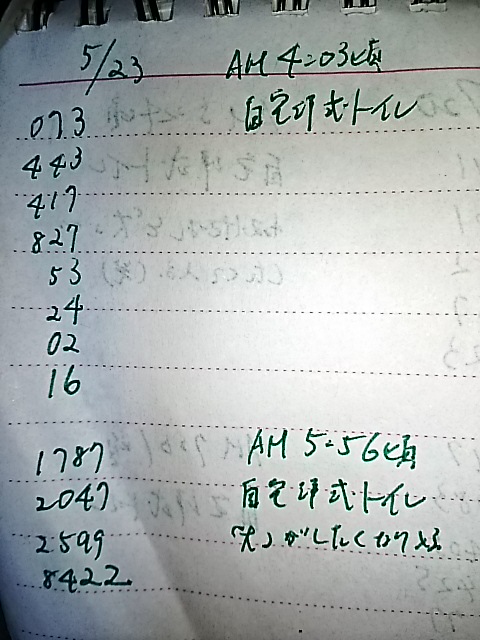 5/23 AM 4:03頃
073 自宅洋式トイレ
443
417
827
53
24
02
16
1787 AM 5:56頃
2047 自宅洋式トイレ
2599 「大」がしたくなり
8422